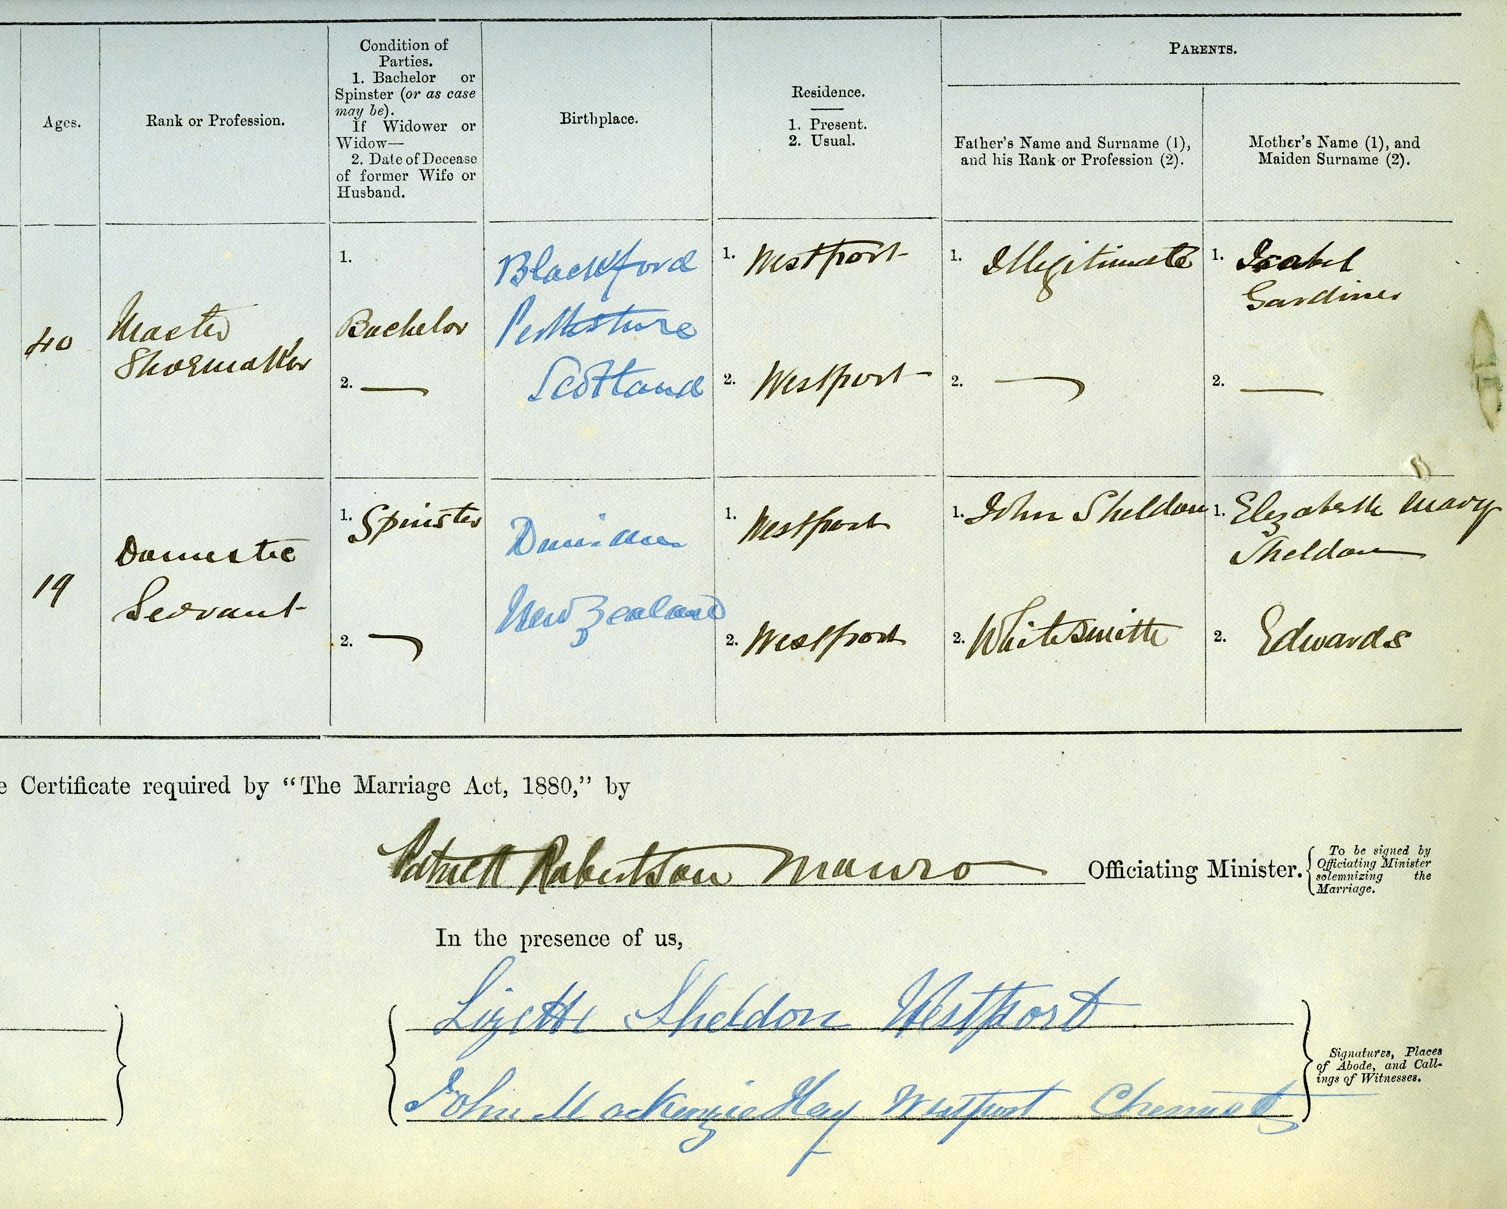 Ages.
Rank or Profession.
Condition of
Parties.
1. Bachelor or
Spinster (or as case
may be).
If Widower or
Widow—
2. Date of Decease
of former Wife or
Husband.
Birthplace.
Residence.
1. Present.
2. Usual.
PARENTS.
Father's Name and Surname (1),
and his Rank or Profession (2).
Mother's Name (1), and
Maiden Surname (2).
40
Master
Shoemaker
1.
Bachelor
2. —
Blackford
Perthshire
Scotland
1. Westport
2. Westport
1. Illegitimate
2. —
1. Isabel
Gardiner
2. —
19
Domestic
Servant
1. Spinster
2. —
New Zealand
1. Westport
2. Westport
1. John Sheldon
2. Whitesmith
1. Elizabeth Mary
Sheldon
2. Edwards
e Certificate required by "The Marriage Act, 1880," by
Patrick Robertson Munro
Officiating Minister.
To be signed by
Officiating Minister
solemnizing the
Marriage.
In the presence of us,
Lizette Sheldon Westport
John MacKenzie Hay Westport Chemist
Signatures, Places
of Abode, and Call-
ings of Witnesses.